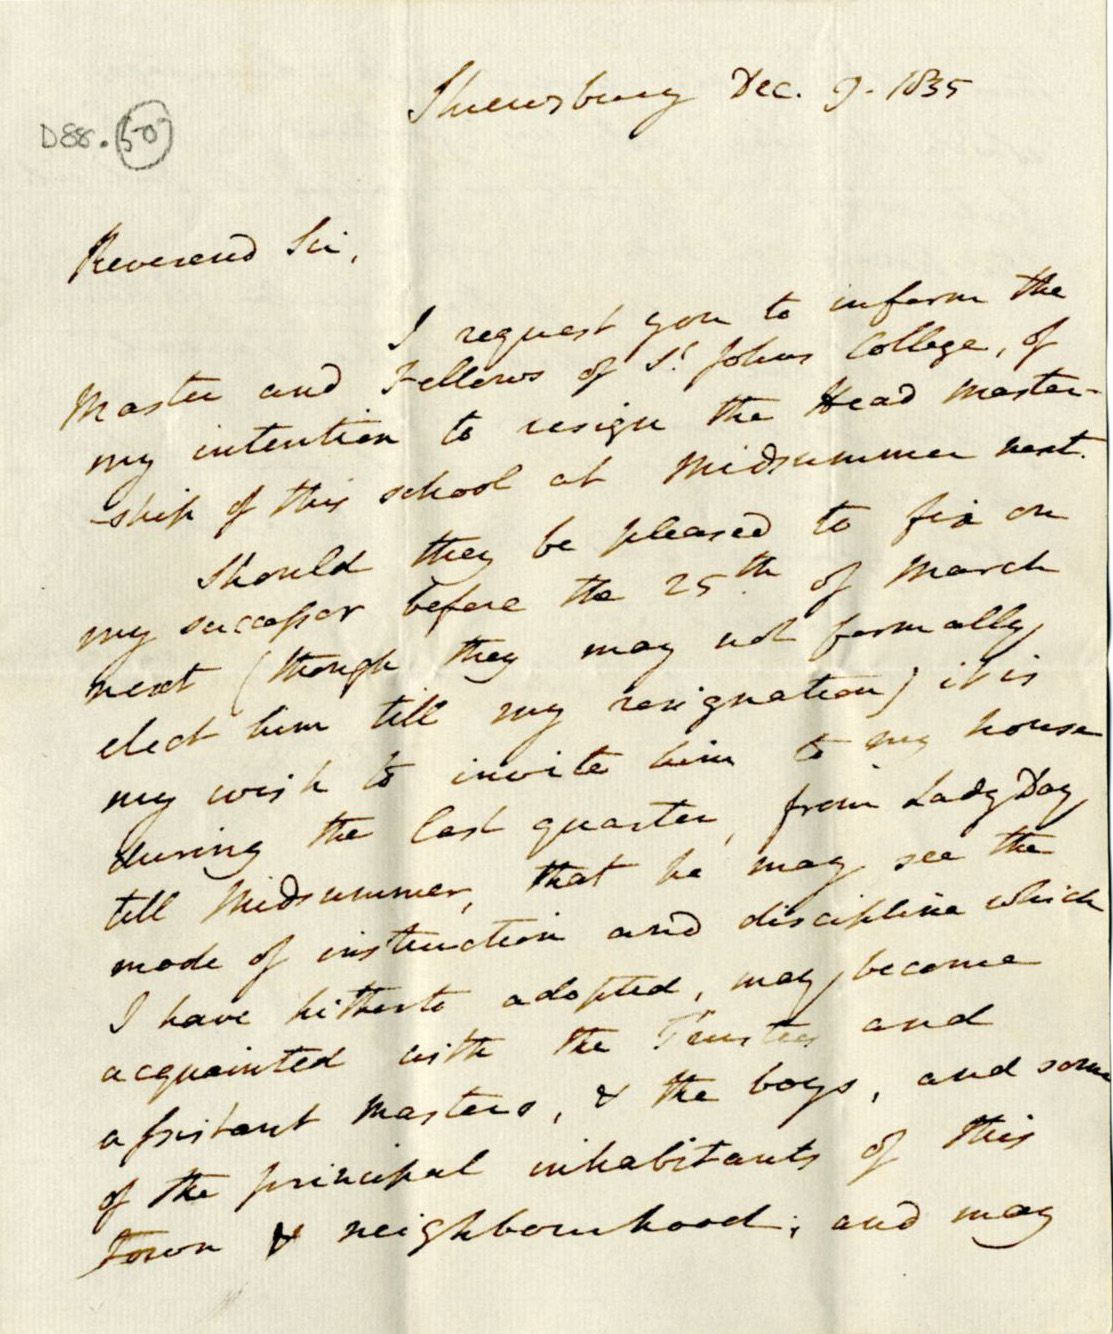 Shrewsbury Dec. 9. 1835
D88.50
Reverend Sir,
I request you to inform the
Master and Fellows of St. Johns College, of
my intention to resign the Head Master-
-ship of this school at Midsummer next.
Should they be pleased to fix on
my successor before the 25th of March
next (though they may not formally
elect him till my resignation) it is
my wish to invite him to my house
during the last quarter, from Lady Day
till Midsummer, that he may see the
mode of instruction and discipline which
I have hitherto adopted, may become
acquainted with the Trustees and
assistant Masters, & the boys, and some
of the principal inhabitants of this
town & neighbourhood; and may